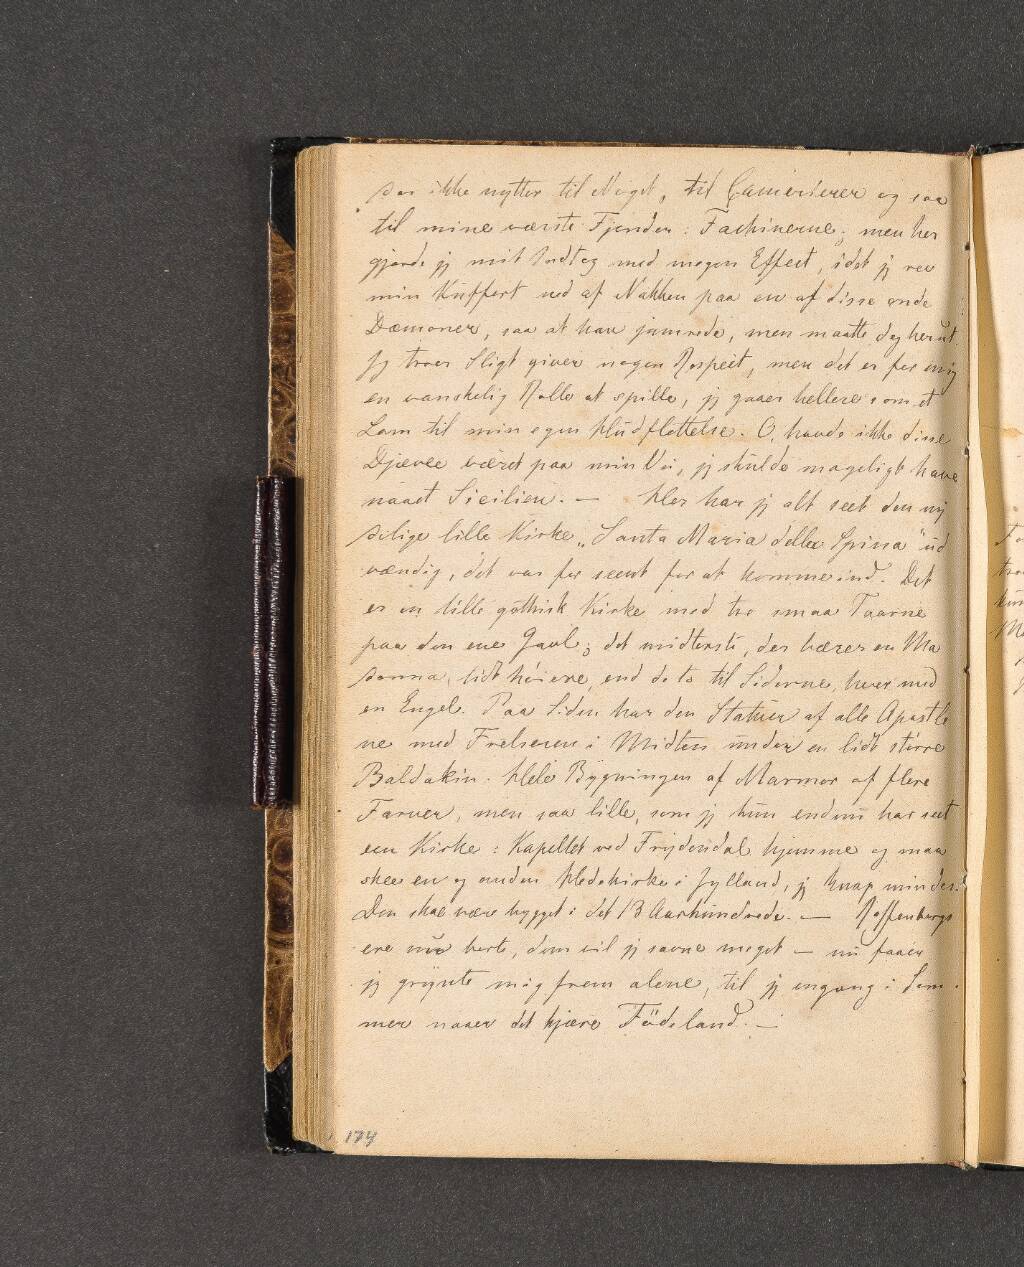 der ikke nytter til Noget, til Camerierer og saa
til mine værste Fjender: Fachinerne; men her
gjorde jeg mit Indtog med megen Effect, idet jeg rev
min Kuffert ned af Nakken paa en af disse onde
Dæmoner, saa at han jamrede, men maatte dog herut
Jeg troer Sligt giver nogen Respect, men det er for mig
en vanskelig Rolle at spille, jeg gaaer hellere som et
Lam til min egen Hudflettelse. O, havde ikke disse
Djævle været paa min Vei, jeg skulde mageligt have
naaet Sicilien. — Her har jeg alt seet den ny
delige lille Kirke „Santa Maria della Spina" ud
vændig, det var for seent for at komme ind. Det
er en lille gothisk Kirke med tre smaa Taarne
paa den ene Gavl; det midterste, der bærer en Ma
donna, lidt høiere, end de to til Siderne, hver med
en Engel. Paa Siden har den Statuer af alle Apostle
ne med Frelseren i Midten under en lidt større
Baldakin. Hele Bygningen af Marmor af flere
Farver, men saa lille, som jeg kun endnu har seet
een Kirke: Kapellet ved Frydendal hjemme og maa
skee en og anden Hedekirke i Jylland, jeg knap mindes.
Den skal være bygget i det 13 Aarhundrede. — Roffenbergs
ere nu borte, dem vil jeg savne meget — nu faaer
jeg grynte mig frem alene, til jeg engang i Som
mer naaer det kjære Födeland. —
174